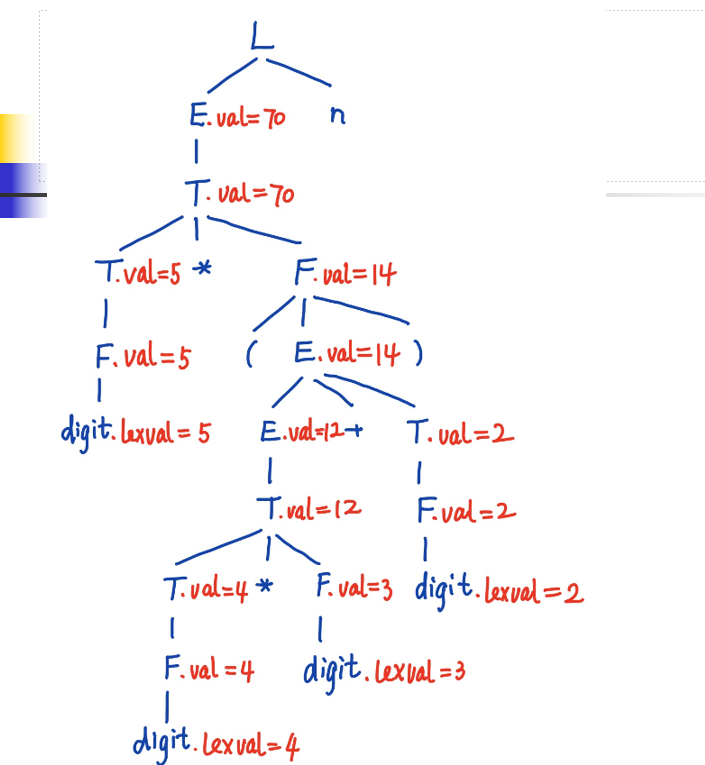 L
E.val=70 n
T.val=70
T.val=5 * F.val=14
F.val=5 ( E.val=14 )
digit.lexval=5 E.val=12 + T.val=2
T.val=12 F.val=2
T.val=4 * F.val=3 digit.lexval=2
F.val=4 digit.lexval=3
digit.lexval=4